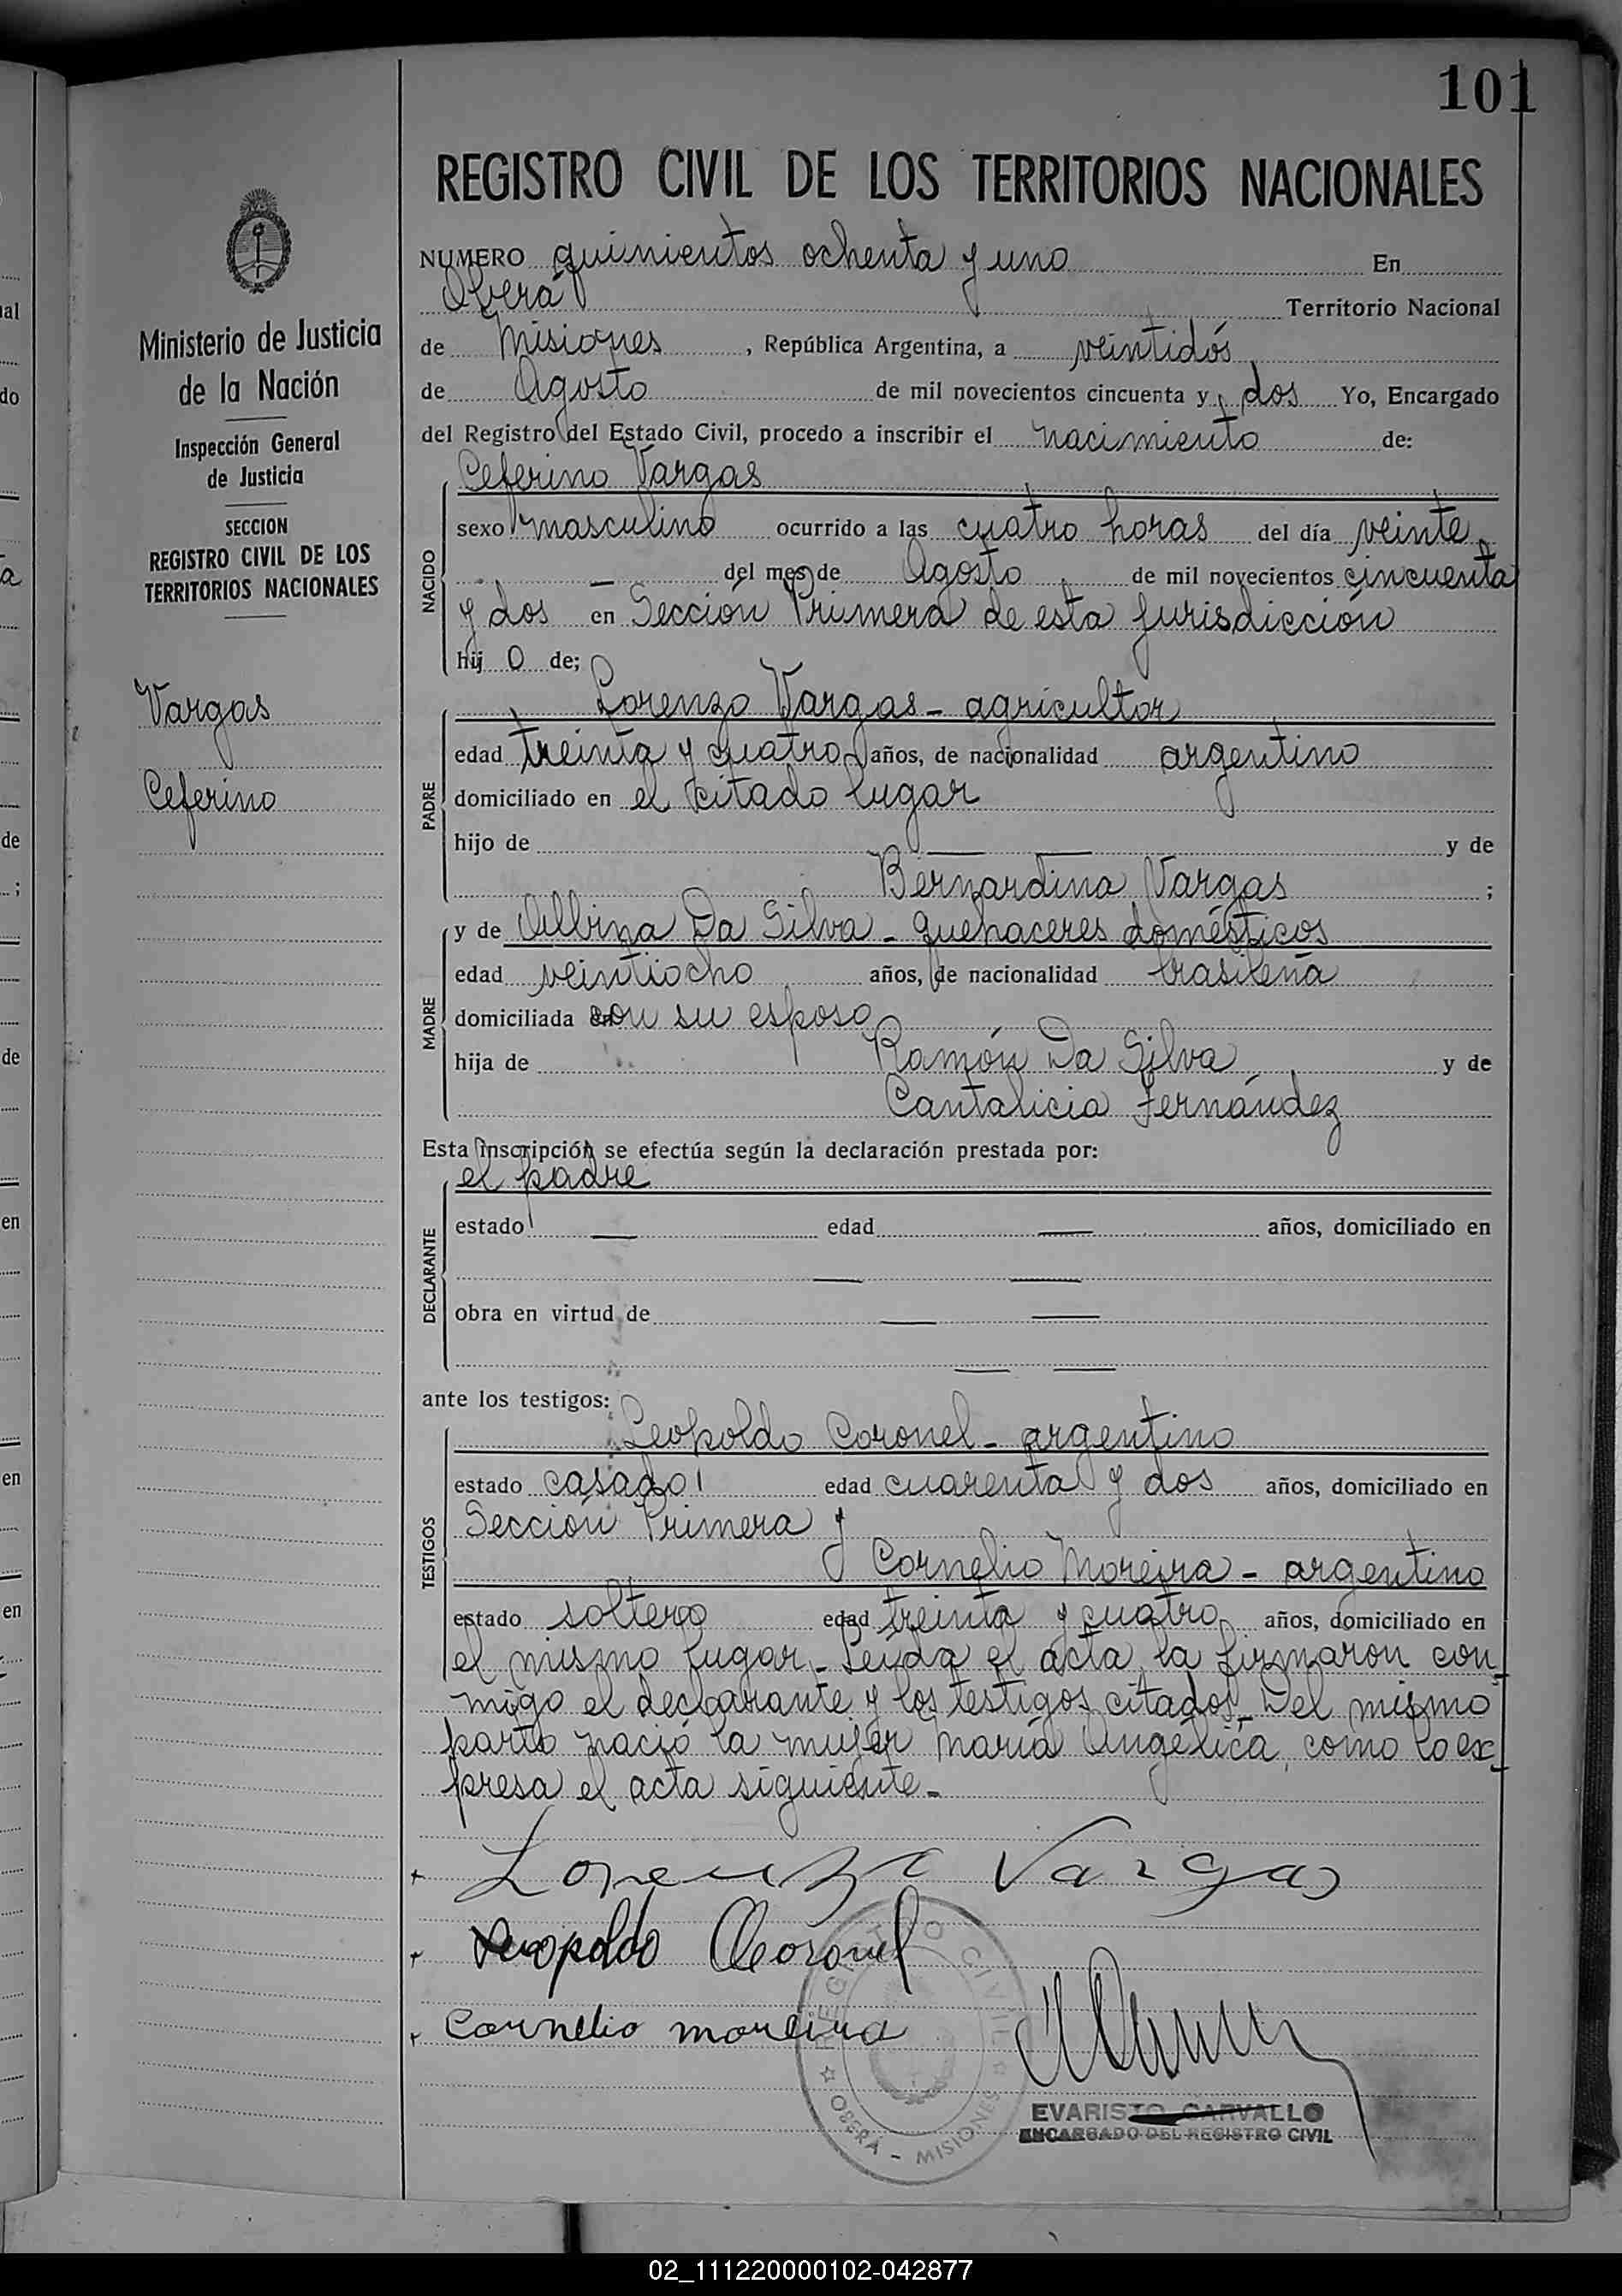 101
REGISTRO CIVIL DE LOS TERRITORIOS NACIONALES
Ministerio de Justicia
de la Nación
Inspección General
de Justicia
SECCION
REGISTRO CIVIL DE LOS
TERRITORIOS NACIONALES
Vargas
Ceferino
NUMERO quinientos ochenta y uno En
Oberá Territorio Nacional
de Misiones, República Argentina, a veintidós
de Agosto de mil novecientos cincuenta y dos Yo, Encargado
del Registro del Estado Civil, procedo a inscribir el nacimiento de:
NACIDO
Ceferino Vargas
sexo masculino ocurrido a las cuatro horas del día veinte
— del mes de Agosto de mil novecientos cincuenta
y dos en Sección Primera de esta jurisdicción
hij o de;
PADRE
Lorenzo Vargas - agricultor
edad treinta y cuatro años, de nacionalidad argentino
domiciliado en el citado lugar
hijo de — — y de
Bernardina Vargas ;
MADRE
y de Albina Da Silva - quehaceres domésticos
edad veintiocho años, de nacionalidad brasileña
domiciliada con su esposo
hija de Ramón Da Silva y de
Cantalicia Fernández
Esta inscripción se efectúa según la declaración prestada por:
DECLARANTE
el padre
estado — edad — años, domiciliado en
— —
obra en virtud de — —
— —
ante los testigos:
TESTIGOS
Leopoldo Coronel - argentino
estado casado edad cuarenta y dos años, domiciliado en
Sección Primera y
Cornelio Moreira - argentino
estado soltero edad treinta y cuatro años, domiciliado en
el mismo lugar - Leída el acta la firmaron con-
migo el declarante y los testigos citados - Del mismo
parto nació la mujer María Angélica, como lo ex-
presa el acta siguiente -
Lorenzo Vargas
Leopoldo Coronel
Cornelio moreira
REGISTRO CIVIL
OBERÁ - MISIONES
EVARISTO CARVALLO
ENCARGADO DEL REGISTRO CIVIL
02_111220000102-042877